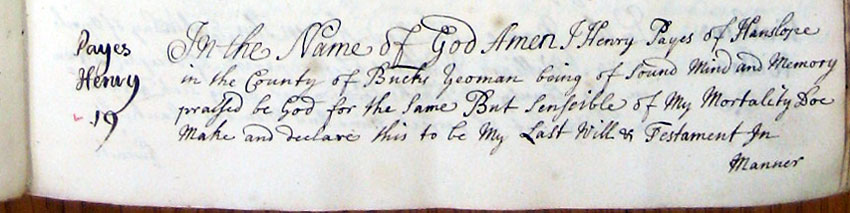 Payes
Henry
19
In the Name of God Amen I Henry Payes of Hanslope
in the County of Bucks Yeoman being of Sound Mind and Memory
praised be God for the Same But Sensible of My Mortality Doe
Make and declare this to be My Last Will & Testament In
Manner